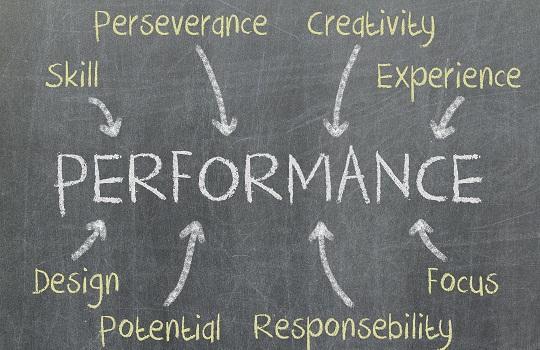 Perseverance Creativity
Skill Experience
PERFORMANCE
Design Focus
Potential Responsebility